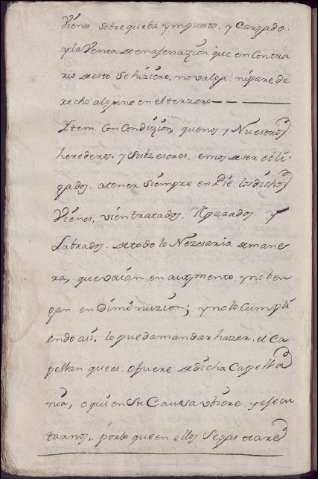 Vienes sobre que ba ympuesto. y Cargado.
y la Venta o enagenazion que en Contra
rio de esto Se hiziere, no valga, ni pase de
recho alguno en el terzero — — —
Ytem Con Condizion, que nos y Nuestros
herederos y Subzesores, emos de ser obli
gados. a tener Siempre en Pie los dichos
Vienes, vien tratados. Reparados. y
Labrados. de todo lo Nezesario de mane
ra, que vaian en augmento y no ben
gan en Diminuzion; y no lo Cumpli
endo asi, lo pueda mandar hazer. el Ca
pellan que es. o fuere de dicha Capella
nia, o quien Su Causa ubiere y ejecu
tarnos, por lo que en ellos Se gastare